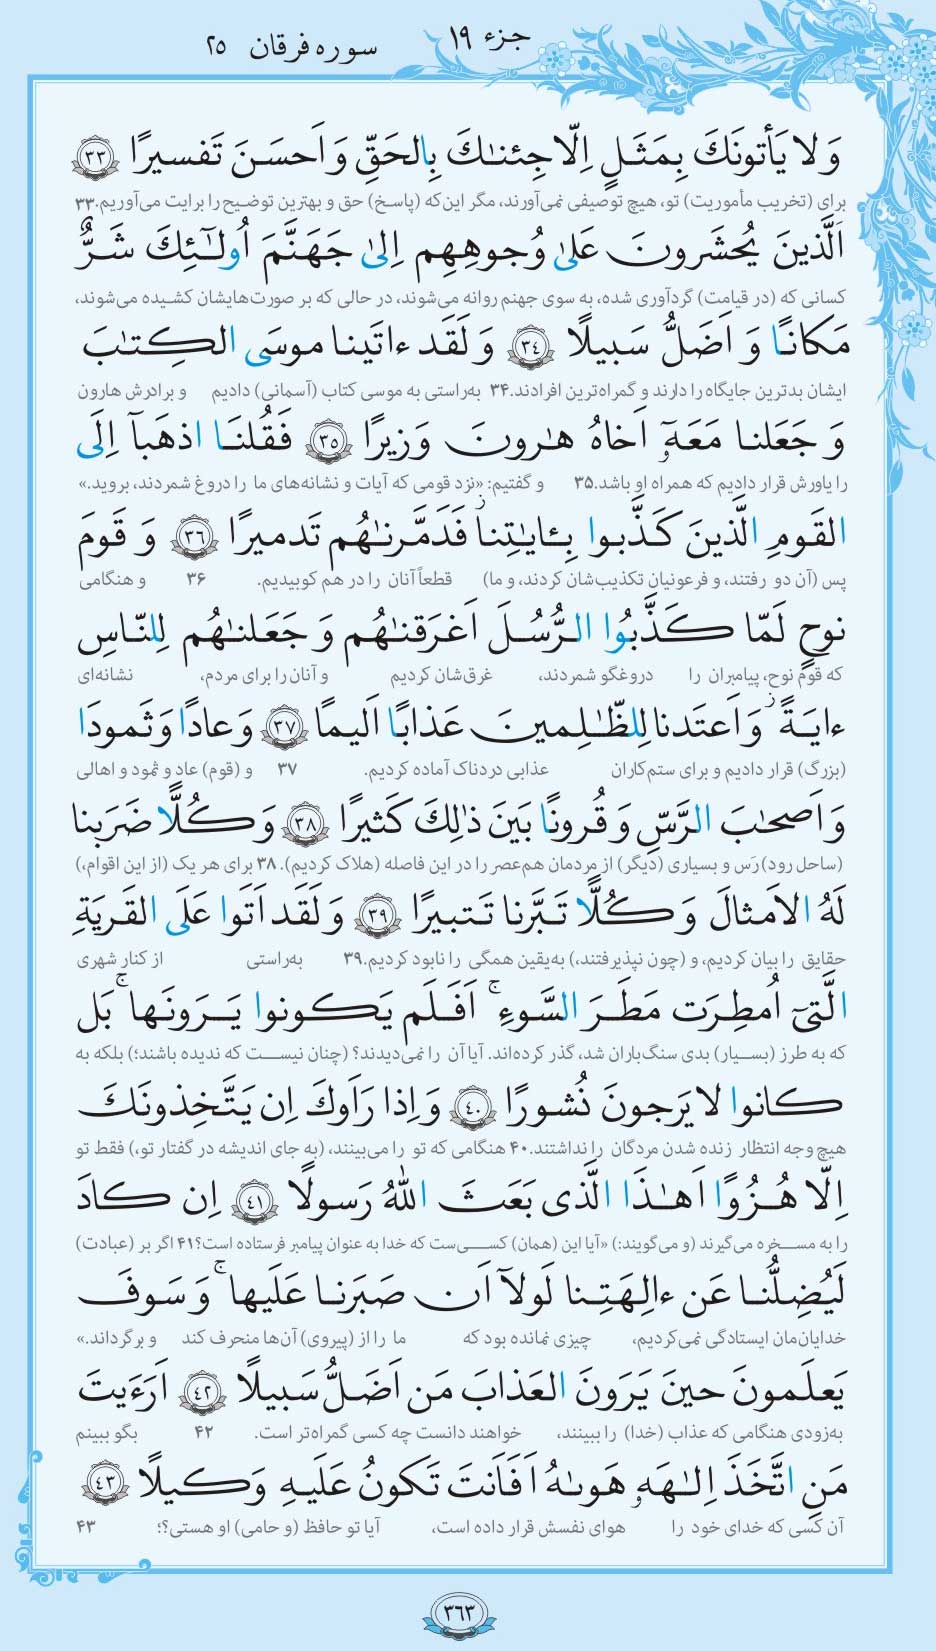 جزء ۱۹
سوره فرقان ۲۵
وَ لا يَأتونَكَ بِمَثَلٍ اِلّا جِئنٰكَ بِالحَقِّ وَ اَحسَنَ تَفسيرًا ﴿۳۳﴾
برای (تخریب مأموریت) تو، هیچ توصیفی نمی‌آورند، مگر این‌که (پاسخ) حق و بهترین توضیح را برایت می‌آوریم.۳۳
اَلَّذينَ يُحشَرونَ عَلىٰ وُجوهِهِم اِلىٰ جَهَنَّمَ اُولٰٓئِكَ شَرٌّ
کسانی که (در قیامت) گردآوری شده، به سوی جهنم روانه می‌شوند، در حالی که بر صورت‌هایشان کشیده می‌شوند،
مَكانًا وَ اَضَلُّ سَبيلًا ﴿۳۴﴾ وَ لَقَد ءاتَينا موسَى الكِتٰبَ
ایشان بدترین جایگاه را دارند و گمراه‌ترین افرادند.۳۴ به‌راستی به موسی کتاب (آسمانی) دادیم و برادرش هارون
وَ جَعَلنا مَعَهٗٓ اَخاهُ هٰرونَ وَزيرًا ﴿۳۵﴾ فَقُلنَا اذهَبآ اِلَى
را یاورش قرار دادیم که همراه او باشد.۳۵ و گفتیم: «نزد قومی که آیات و نشانه‌های ما را دروغ شمردند، بروید.»
القَومِ الَّذينَ كَذَّبوا بِـٔايٰتِنا ز فَدَمَّرنٰهُم تَدميرًا ﴿۳۶﴾ وَ قَومَ
پس (آن دو رفتند، و فرعونیان تکذیب‌شان کردند، و ما) قطعاً آنان را در هم کوبیدیم. ۳۶ و هنگامی
نوحٍ لَمّا كَذَّبُوا الرُّسُلَ اَغرَقنٰهُم وَ جَعَلنٰهُم لِلنّاسِ
که قوم نوح، پیامبران را دروغگو شمردند، غرق‌شان کردیم و آنان را برای مردم، نشانه‌ای
ءايَةً ز وَ اَعتَدنا لِلظّٰلِمينَ عَذابًا اَليمًا ﴿۳۷﴾ وَ عادًا وَ ثَمودَا
(بزرگ) قرار دادیم و برای ستم‌کاران عذابی دردناک آماده کردیم. ۳۷ و (قوم) عاد و ثمود و اهالی
وَ اَصحٰبَ الرَّسِّ وَ قُرونًا بَينَ ذٰلِكَ كَثيرًا ﴿۳۸﴾ وَ كُلًّا ضَرَبنا
(ساحل رود) رَس و بسیاری (دیگر) از مردمان هم‌عصر را در این فاصله (هلاک کردیم). ۳۸ برای هر یک (از این اقوام،)
لَهُ الاَمثالَ وَ كُلًّا تَبَّرنا تَتبيرًا ﴿۳۹﴾ وَ لَقَد اَتَوا عَلَى القَريَةِ
حقایق را بیان کردیم، و (چون نپذیرفتند،) به‌یقین همگی را نابود کردیم.۳۹ به‌راستی از کنار شهری
الَّتيٓ اُمطِرَت مَطَرَ السَّوءِ ۚ اَفَلَم يَكونوا يَرَونَها ۚ بَل
که به طرز (بسیار) بدی سنگ‌باران شد، گذر کرده‌اند. آیا آن را نمی‌دیدند؟ (چنان نیست که ندیده باشند؛) بلکه به
كانوا لا يَرجونَ نُشورًا ﴿۴۰﴾ وَ اِذا رَاَوكَ اِن يَتَّخِذونَكَ
هیچ وجه انتظار زنده شدن مردگان را نداشتند.۴۰ هنگامی که تو را می‌بینند، (به جای اندیشه در گفتار تو،) فقط تو
اِلّا هُزُوًا اَهٰذَا الَّذي بَعَثَ اللّٰهُ رَسولًا ﴿۴۱﴾ اِن كادَ
را به مسخره می‌گیرند (و می‌گویند:) «آیا این (همان) کسی‌ست که خدا به عنوان پیامبر فرستاده است؟۴۱ اگر بر (عبادت)
لَيُضِلُّنا عَن ءالِهَتِنا لَولآ اَن صَبَرنا عَلَيها ۚ وَ سَوفَ
خدایان‌مان ایستادگی نمی‌کردیم، چیزی نمانده بود که ما را از (پیروی) آن‌ها منحرف کند و برگرداند.»
يَعلَمونَ حينَ يَرَونَ العَذابَ مَن اَضَلُّ سَبيلًا ﴿۴۲﴾ اَرَءَيتَ
به‌زودی هنگامی که عذاب (خدا) را ببینند، خواهند دانست چه کسی گمراه‌تر است. ۴۲ بگو ببینم
مَنِ اتَّخَذَ اِلٰهَهٗ هَوىٰهُ اَفَاَنتَ تَكونُ عَلَيهِ وَكيلًا ﴿۴۳﴾
آن کسی که خدای خود را هوای نفسش قرار داده است، آیا تو حافظ (و حامی) او هستی؟؛ ۴۳
۳۶۳